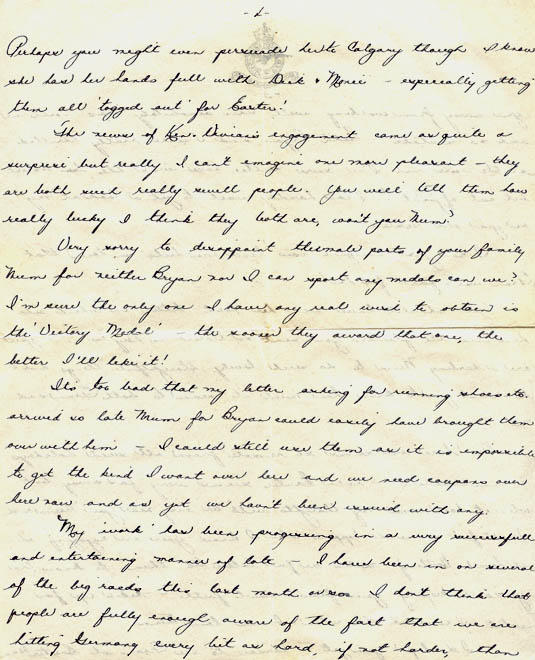 -2-
Perhaps you might even persuade her to Calgary though I know
she has her hands full with Dick & Marie - especially getting
them all 'togged out' for Easter!
The news of Ken - Vivian's engagement came as quite a
surprise but really I can't imagine one more pleasant - they
are both such really swell people. You will tell them how
really lucky I think they both are, won't you Mum?
Very sorry to disappoint the male parts of your family
Mum for neither Bryan nor I can sport any medals can we?
I'm sure the only one I have any real wish to obtain is
the 'Victory Medal' - the sooner they award that one, the
better I'll like it!
It's too bad that my letter asking for running shoes etc.
arrived so late Mum for Bryan could easily have brought them
over with him - I could still use them as it is impossible
to get the kind I want over here and we need coupons over
here now and as yet we havn't been issued with any.
My 'work' has been progressing in a very successfull
and entertaining manner of late - I have been in on several
of the big raids this last month or so. I don't think that
people are fully enough aware of the fact that we are
hitting Germany every bit as hard, if not harder, than